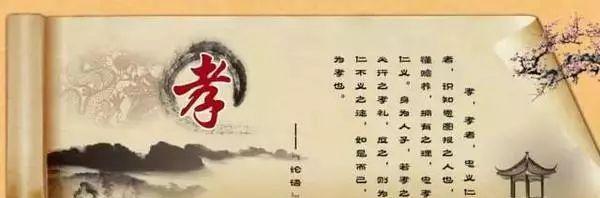 孝，孝者，忠义仁
者，识知恩图报之人也，
懂赡养，拥有之理，忠孝
仁义。身为人子，若孝之
行之孝礼，应之，则为
仁不义之途，如是而已，
为孝也。
——『论语』
孝